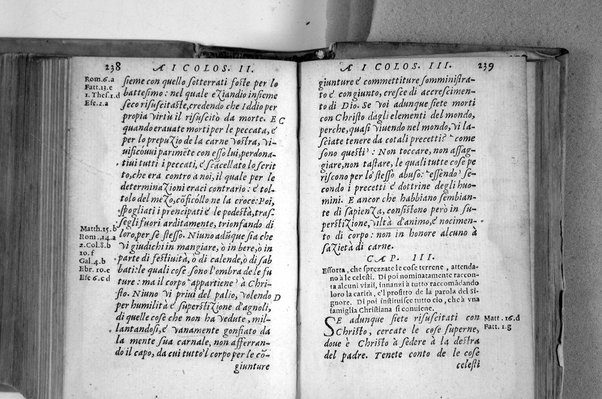 238 AI COLOS. II.
Rom.6.a
Fatt.11.e
1.Thes.1.d
Efe.2.a
sieme con quello sotterrati foste per lo
battesimo: nel quale eziandio insieme
seco risuscitaste, credendo che Iddio per
propia virtù il risuscitò da morte. E C
quando eravate morti per le peccata, e
per lo prepuzio de la carne vostra, vi-
vificovvi parimẽte con esso lui, perdona-
tivi tutti i peccati, e scãcellato lo scrit-
to, che era contro a noi, il quale per le
determinazioni eraci contrario: e tol-
tolo del mezo, cõficcollo ne la croce: Poi,
spogliati i prencipati e le podestà, tras
segli fuori arditamente, trionfando di
Matth.15.b
Rom.14.a
2.Col.8.b
10.f
Gal.4.b
Ebr.10.c
Efe 6.c d
loro, per se stesso. Niuno adũque sia che
vi giudichi in mangiare, ò in bere, ò in
parte di festività, ò di calende, ò di sab
bati: le quali cose sono l'ombra de le fu
ture: ma il corpo appartiene à Chri-
sto. Niuno vi privi del palio, volendo D
per humiltà e superstizione d'agnoli,
di quelle cose che non ha vedute, mil-
lantandosi, e vanamente gonfiato da
la mente sua carnale, non afferran-
do il capo, da cui tutto'l corpo per le cõ-
giunture
AI COLOS. III. 239
giunture e commettiture somministra-
to e congiunto, cresce di accrescimen-
to di Dio. Se voi adunque siete morti
con Christo dagli elementi del mondo,
perche, quasi vivendo nel mondo, vi la-
sciate tenere da cotali precetti? come
sono questi? Non toccare, non assag-
giare, non tastare, le quali tutte cose pe
riscono per lo stesso abuso: essendo se-
condo i precetti e dottrine degli huo-
mini. E ancor che habbiano sembian-
te di sapienza, consistono però in su-
perstizione, viltà d'animo, e nocimen-
to di corpo: non in honore alcuno à
sazietà di carne.
CAP. III.
Essorta, che sprezzate le cose terrene, attenda-
no à le celesti. Di poi nominatamente raccon-
ta alcuni vizii, innanzi à tutto raccomãdando
loro la carità, e'l profitto de la parola del si-
gnore. Di poi instituisce tutto cio, che à vna
famiglia Christiana si conviene.
SE adunque siete risuscitati con
Christo, cercate le cose superne,
Matt.16.d
Fatt.1.g
dove è Christo à sedere à la destra
del padre. Tenete conto de le cose
celesti